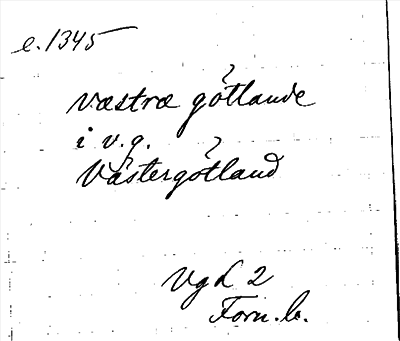 e. 1345
væstræ gøtlande
i v.g.
Västergötland
VgL 2
Forn.b.